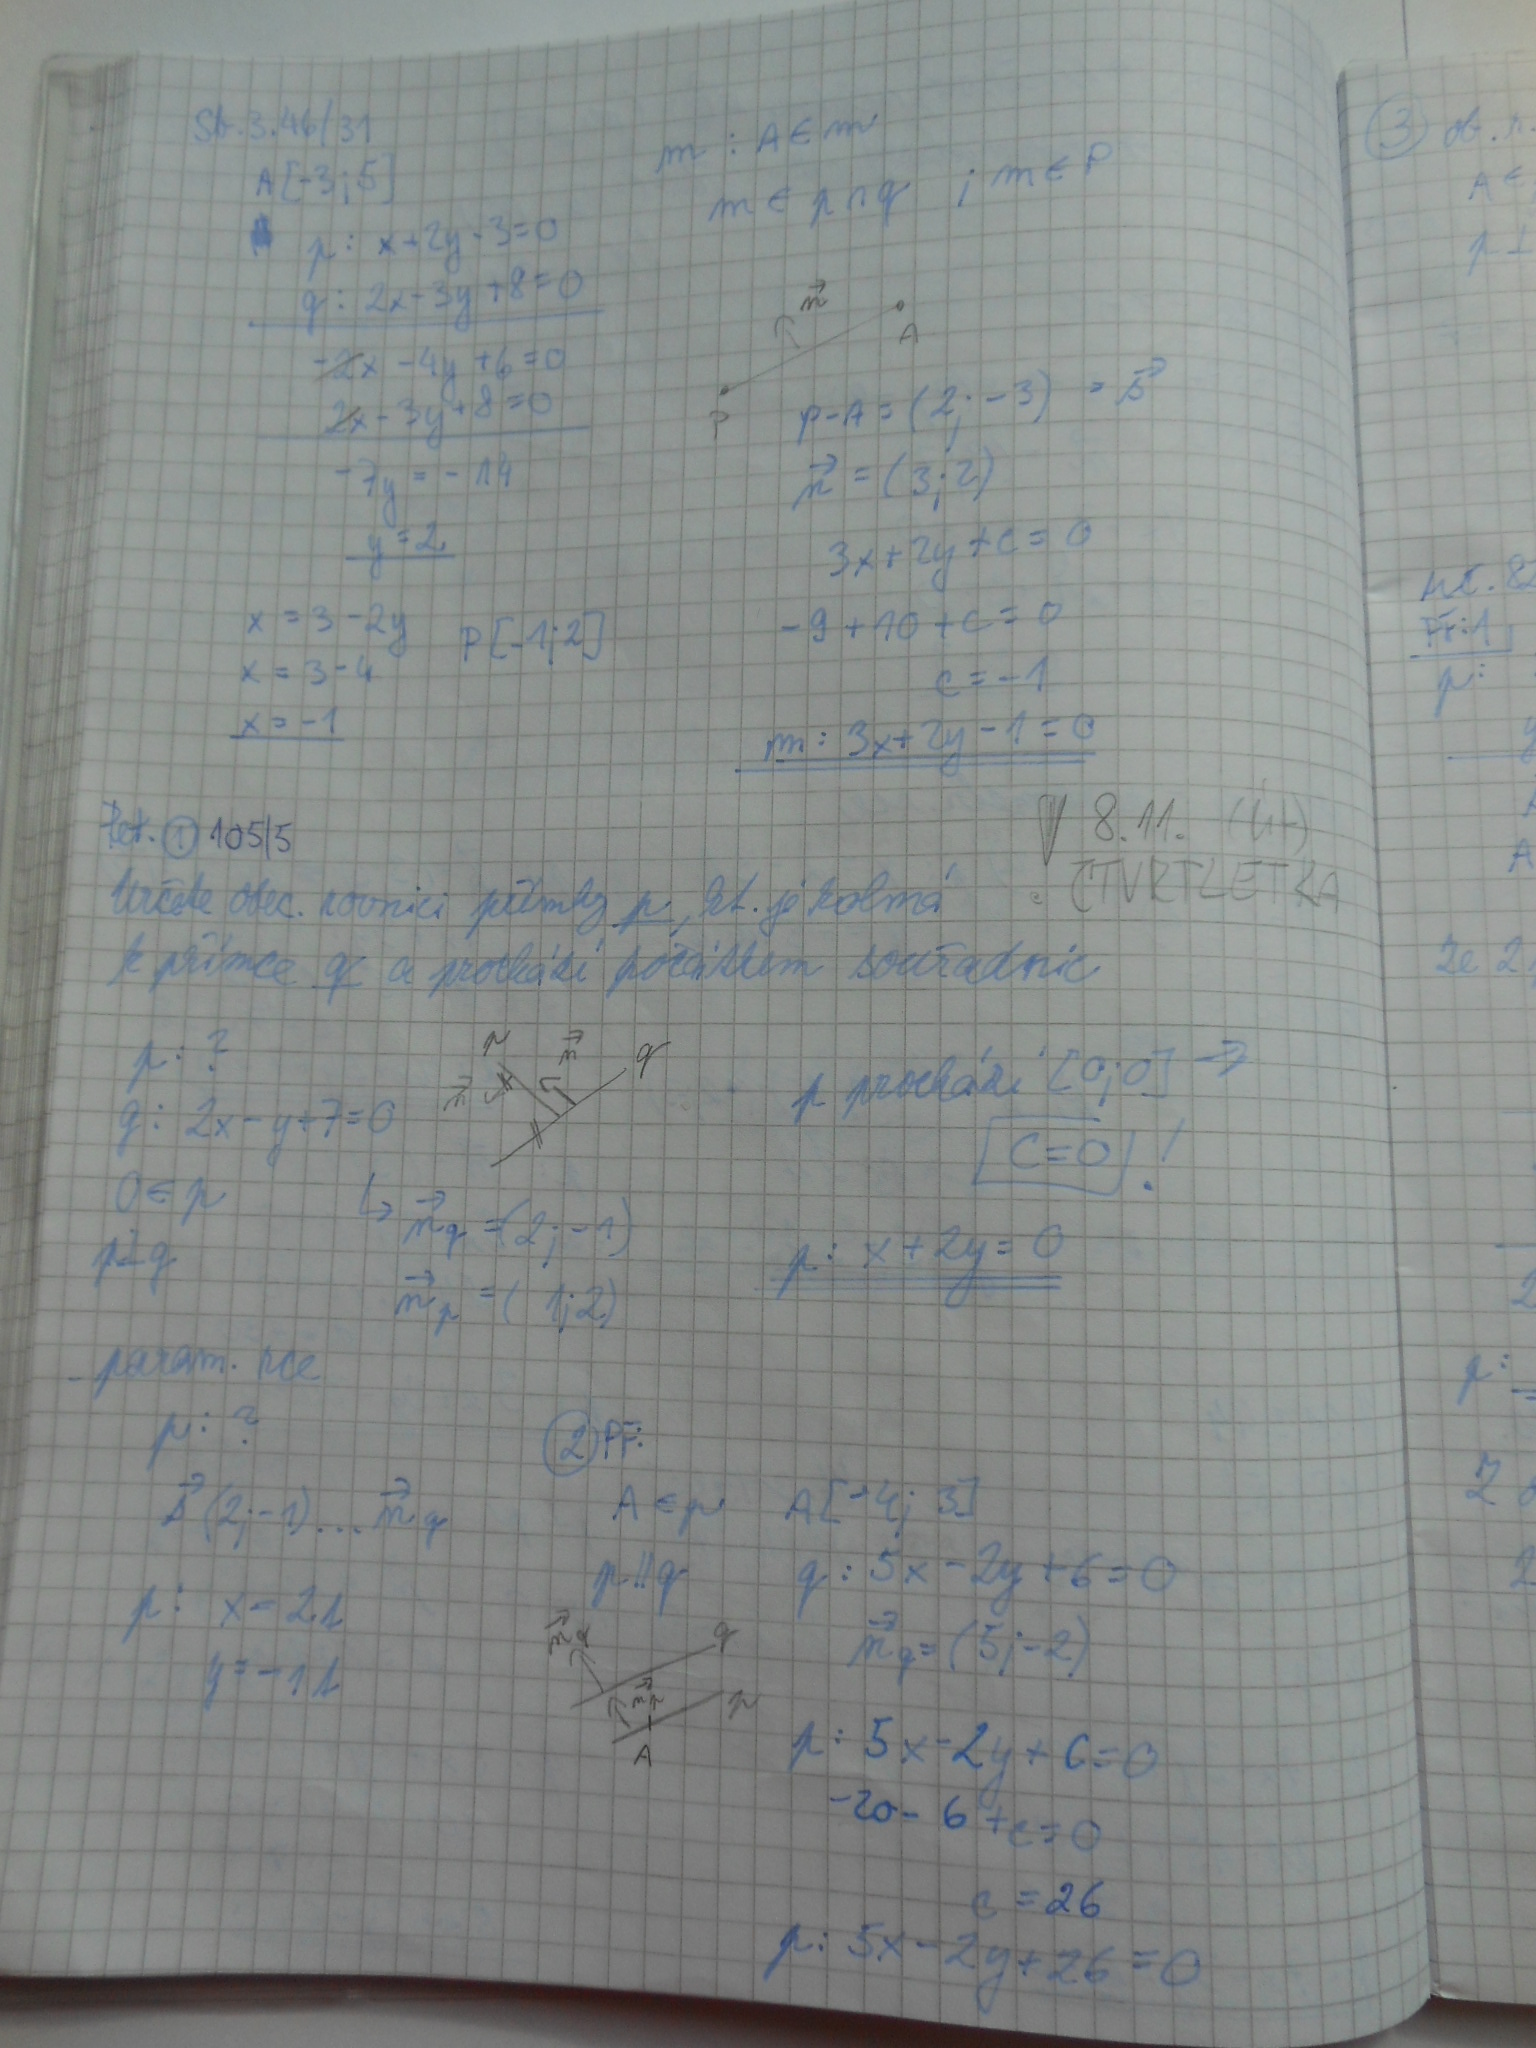 Str. 3.46/31
A[-3;5]
p: x+2y-3=0
q: 2x-3y+8=0
-2x-4y+6=0
2x-3y+8=0
-7y=-14
y=2
x=3-2y
x=3-4
x=-1
P[-1;2]
m: A∈m
m∈p∩q ; m∈P
n⃗
A
P
P-A=(2;-3) = s⃗
n⃗=(3;2)
3x+2y+c=0
-9+10+c=0
c=-1
m: 3x+2y-1=0
! 8.11. (út)
ČTVRTLETKA
① 105/5
Určete obec. rovnici přímky p, kt. je kolmá
k přímce q a prochází počátkem souřadnic
p: ?
q: 2x-y+7=0
0∈p
p⊥q
p
n⃗
n⃗
q
↳ n⃗q=(2;-1)
n⃗p=(1;2)
p prochází [0;0] →
C=0 !
p: x+2y=0
param. rce
p: ?
s⃗(2;-1)...n⃗q
p: x=2t
y=-1t
② Př:
A∈p A[-4;3]
p||q q: 5x-2y+6=0
n⃗q=(5;-2)
n⃗q
q
n⃗p
p
A
p: 5x-2y+6=0
-20-6+c=0
c=26
p: 5x-2y+26=0
③
A∈
p⊥
Př:1
p:
A
ze 2
p:
2
2